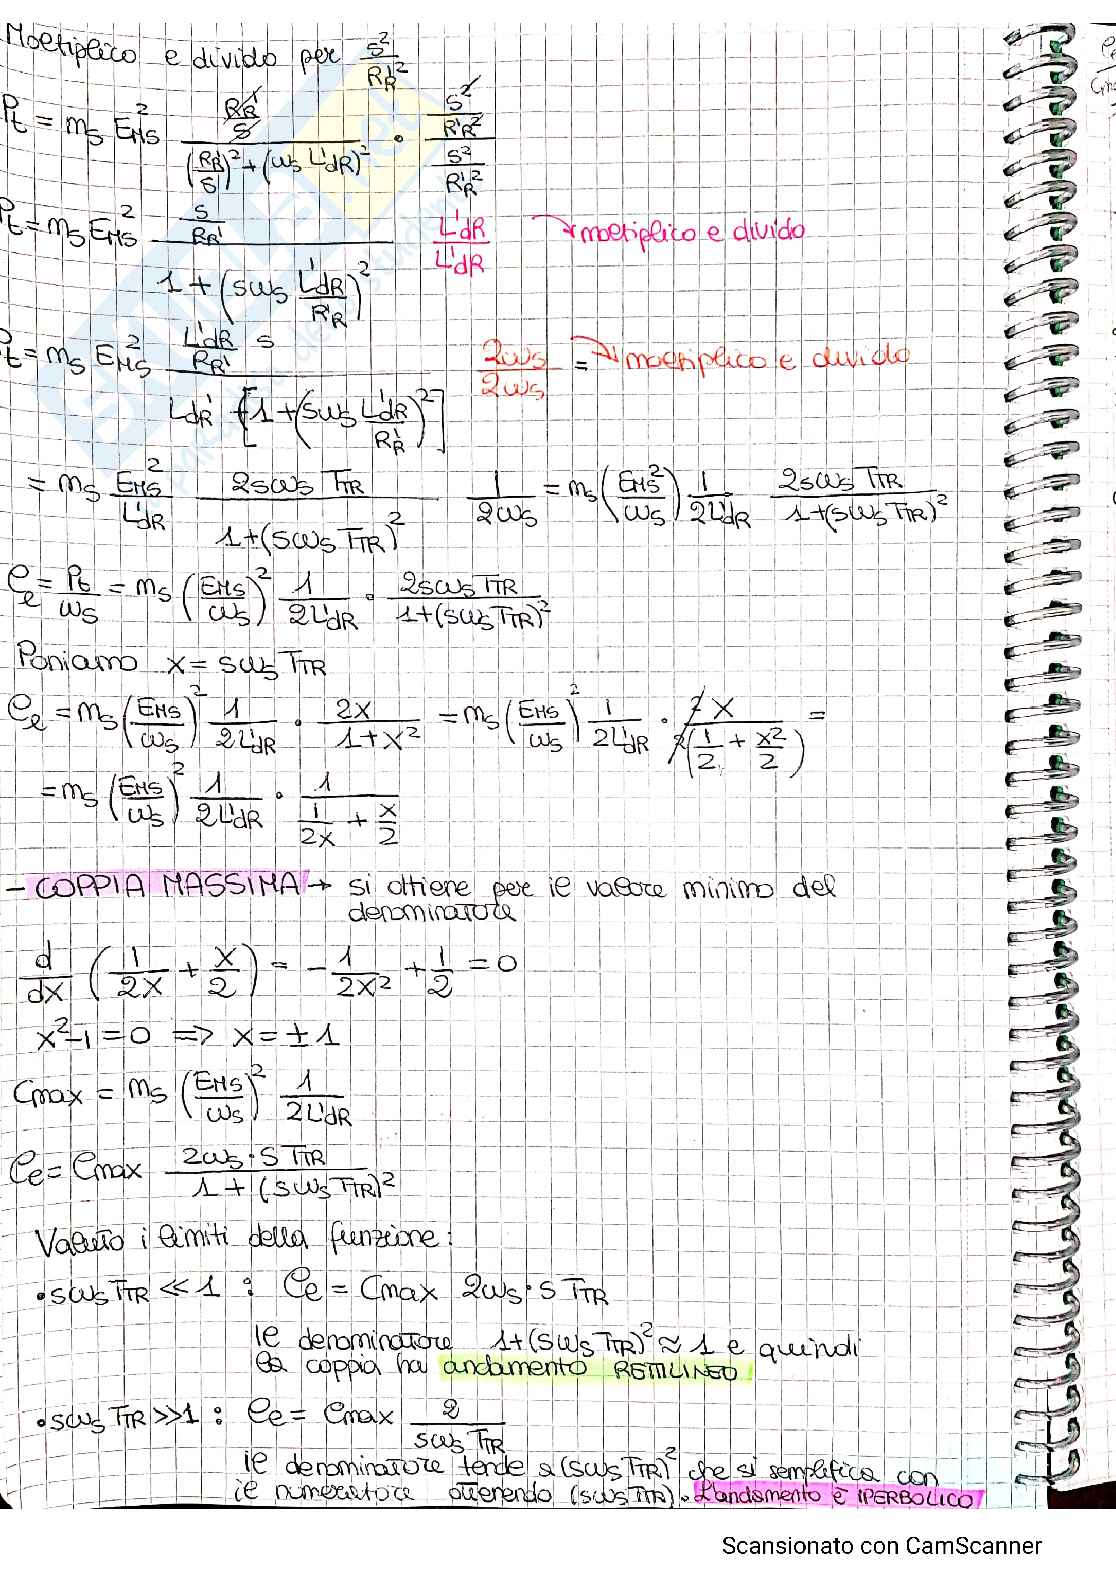 Moltiplico e divido per S²/R'R²
Pt = ms EMS² (R'R/S)/((R'R/S)² + (ωs L'dR)²) · (S²/R'R²)/(S²/R'R²)
Pt = ms EMS² (S/RR')/(1+(sωs L'dR/R'R)²) L'dR/L'dR → moltiplico e divido
Pt = ms EMS² (L'dR/RR' s)/(L'dR [1+(sωs L'dR/R'R)²]) 2ωs/2ωs = → moltiplico e divido
= ms EMS²/L'dR 2sωs TTR/(1+(sωs TTR)²) 1/2ωs = ms (EMS²/ωs) 1/2L'dR 2sωs TTR/(1+(sωs TTR)²)
Ce = Pt/ωs = ms (EMS/ωs)² 1/2L'dR · 2sωs TTR/(1+(sωs TTR)²)
Poniamo x = sωs TTR
Ce = ms (EMS/ωs)² 1/2L'dR · 2x/(1+x²) = ms (EMS/ωs)² 1/2L'dR · 2x/(2(1/2 + x²/2)) =
= ms (EMS/ωs)² 1/2L'dR · 1/(1/2x + x/2)
- COPPIA MASSIMA → si ottiene per il valore minimo del
denominatore
d/dx (1/2x + x/2) = - 1/2x² + 1/2 = 0
x²-1 = 0 => x = ± 1
Cmax = ms (EMS/ωs)² 1/2L'dR
Ce = Cmax 2ωs·s TTR/(1+(sωs TTR)²)
Valuto i limiti della funzione:
• sωs TTR << 1 : Ce = Cmax 2ωs·s TTR
il denominatore 1+(sωs TTR)² ≈ 1 e quindi
la coppia ha andamento RETTILINEO
• sωs TTR >> 1 : Ce = Cmax 2/(sωs TTR)
il denominatore tende a (sωs TTR)² che si semplifica con
il numeratore ottenendo (sωs TTR). L'andamento è IPERBOLICO
Scansionato con CamScanner